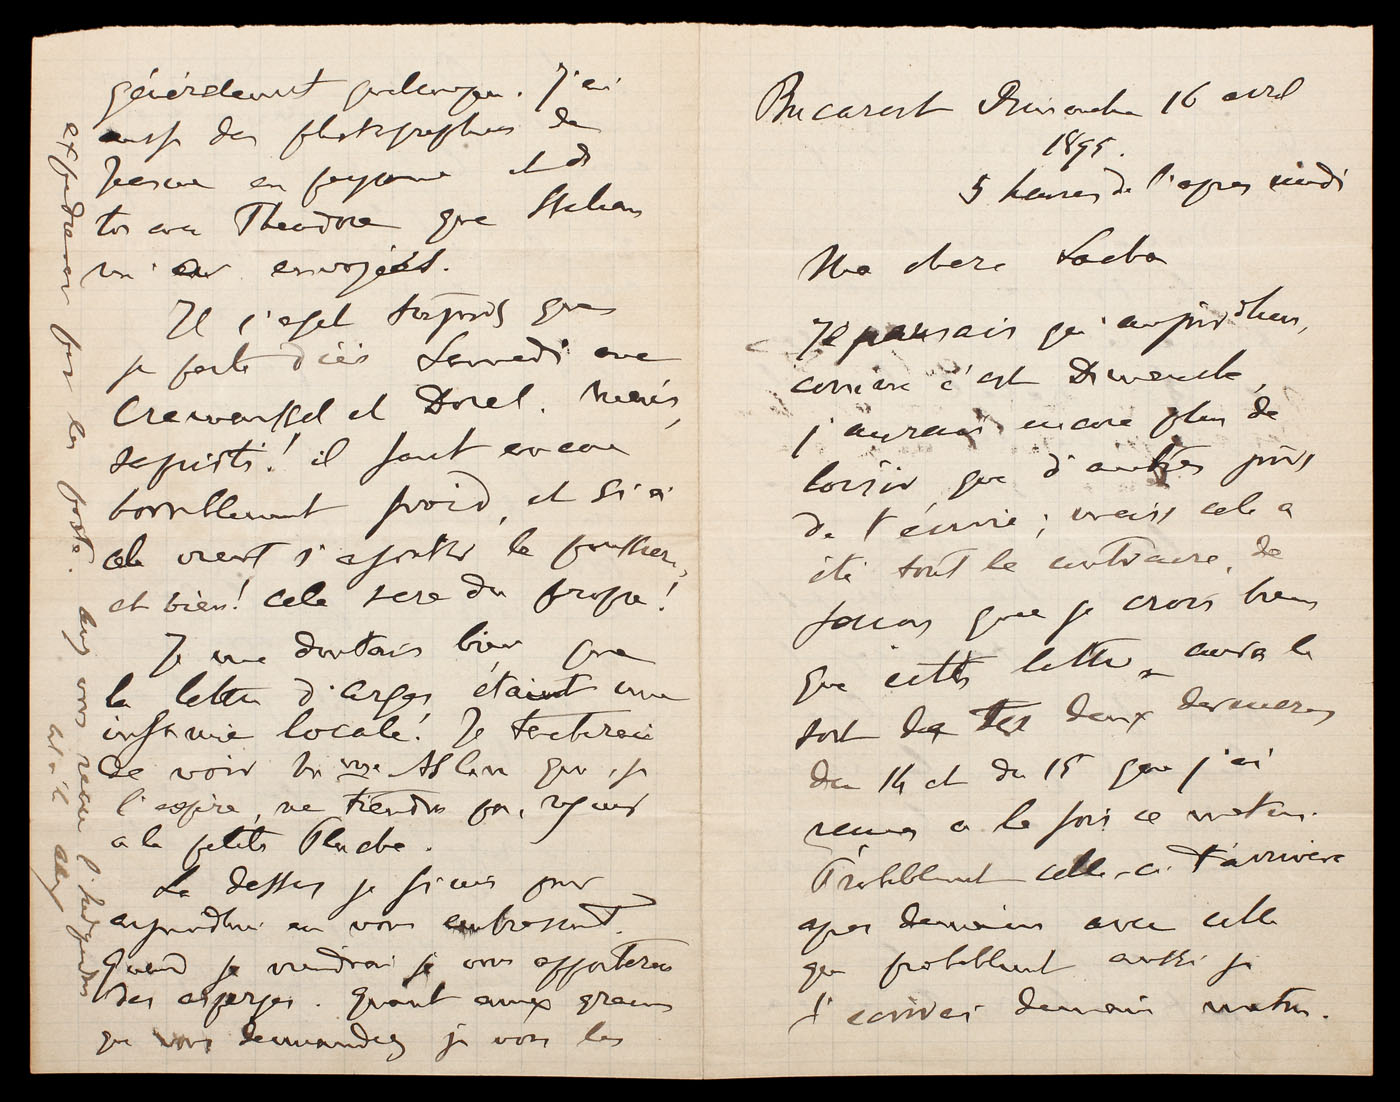 Bucarest Dimanche 16 avril
1895.
5 heures de l'apres midi
Ma chere Sacha
Je pensais qu'aujourd'hui,
comme c'est Dimanche,
j'aurais encore plus de
loisir que d'autres jours
de t'écrire; mais cela a
été tout le contraire, de
façon que je crois bien
que cette lettre aura le
sort des tes deux dernieres
du 14 et du 15 que j'ai
reçues a la fois ce matin.
Probablement celle-ci t'arrivera
apres demain avec celle
que probablement aussi je
t'ecrirai demain matin.
généralement quelconque. J'ai
aussi des photographies de
en et de
toi avec Theodore que
m'a envoyées.
Il s'agit toujours que
je parte d'ici Samedi avec
et Dorel. Mais,
sapristi! il fait encore
horriblement froid, et si a
cela vient s'ajouter la poussiere,
et bien! cela sera du propre!
Je me doutais bien que
la lettre d'Arges était une
infamie locale! Je tacherai
de voir Mme Aslan qui, je
l'espère, ne tiendra pas rigueur
a la petite
La dessus je finis pour
aujourdhui en vous embrassant.
Quand je viendrai je vous apporterai
des asperges. Quant aux graines
que vous demandez je vous les
expedierai par la poste. Avez vous recu l'